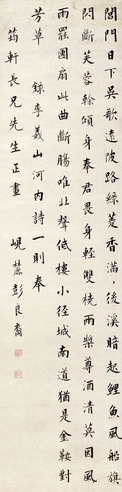 閶門日下吳歌遠陂路綠菱香滿滿後溪暗起鯉魚風船旗
閃斷芙蓉榦傾身奉君畏身輕雙橈兩槳尊酒清莫因風
雨罷團扇此曲斷腸唯北聲低樓小徑城南道猶是金鞍對
芳草 錄李義山河內詩一則奉
筠軒長兄先生正畫
峴樵彭良裔